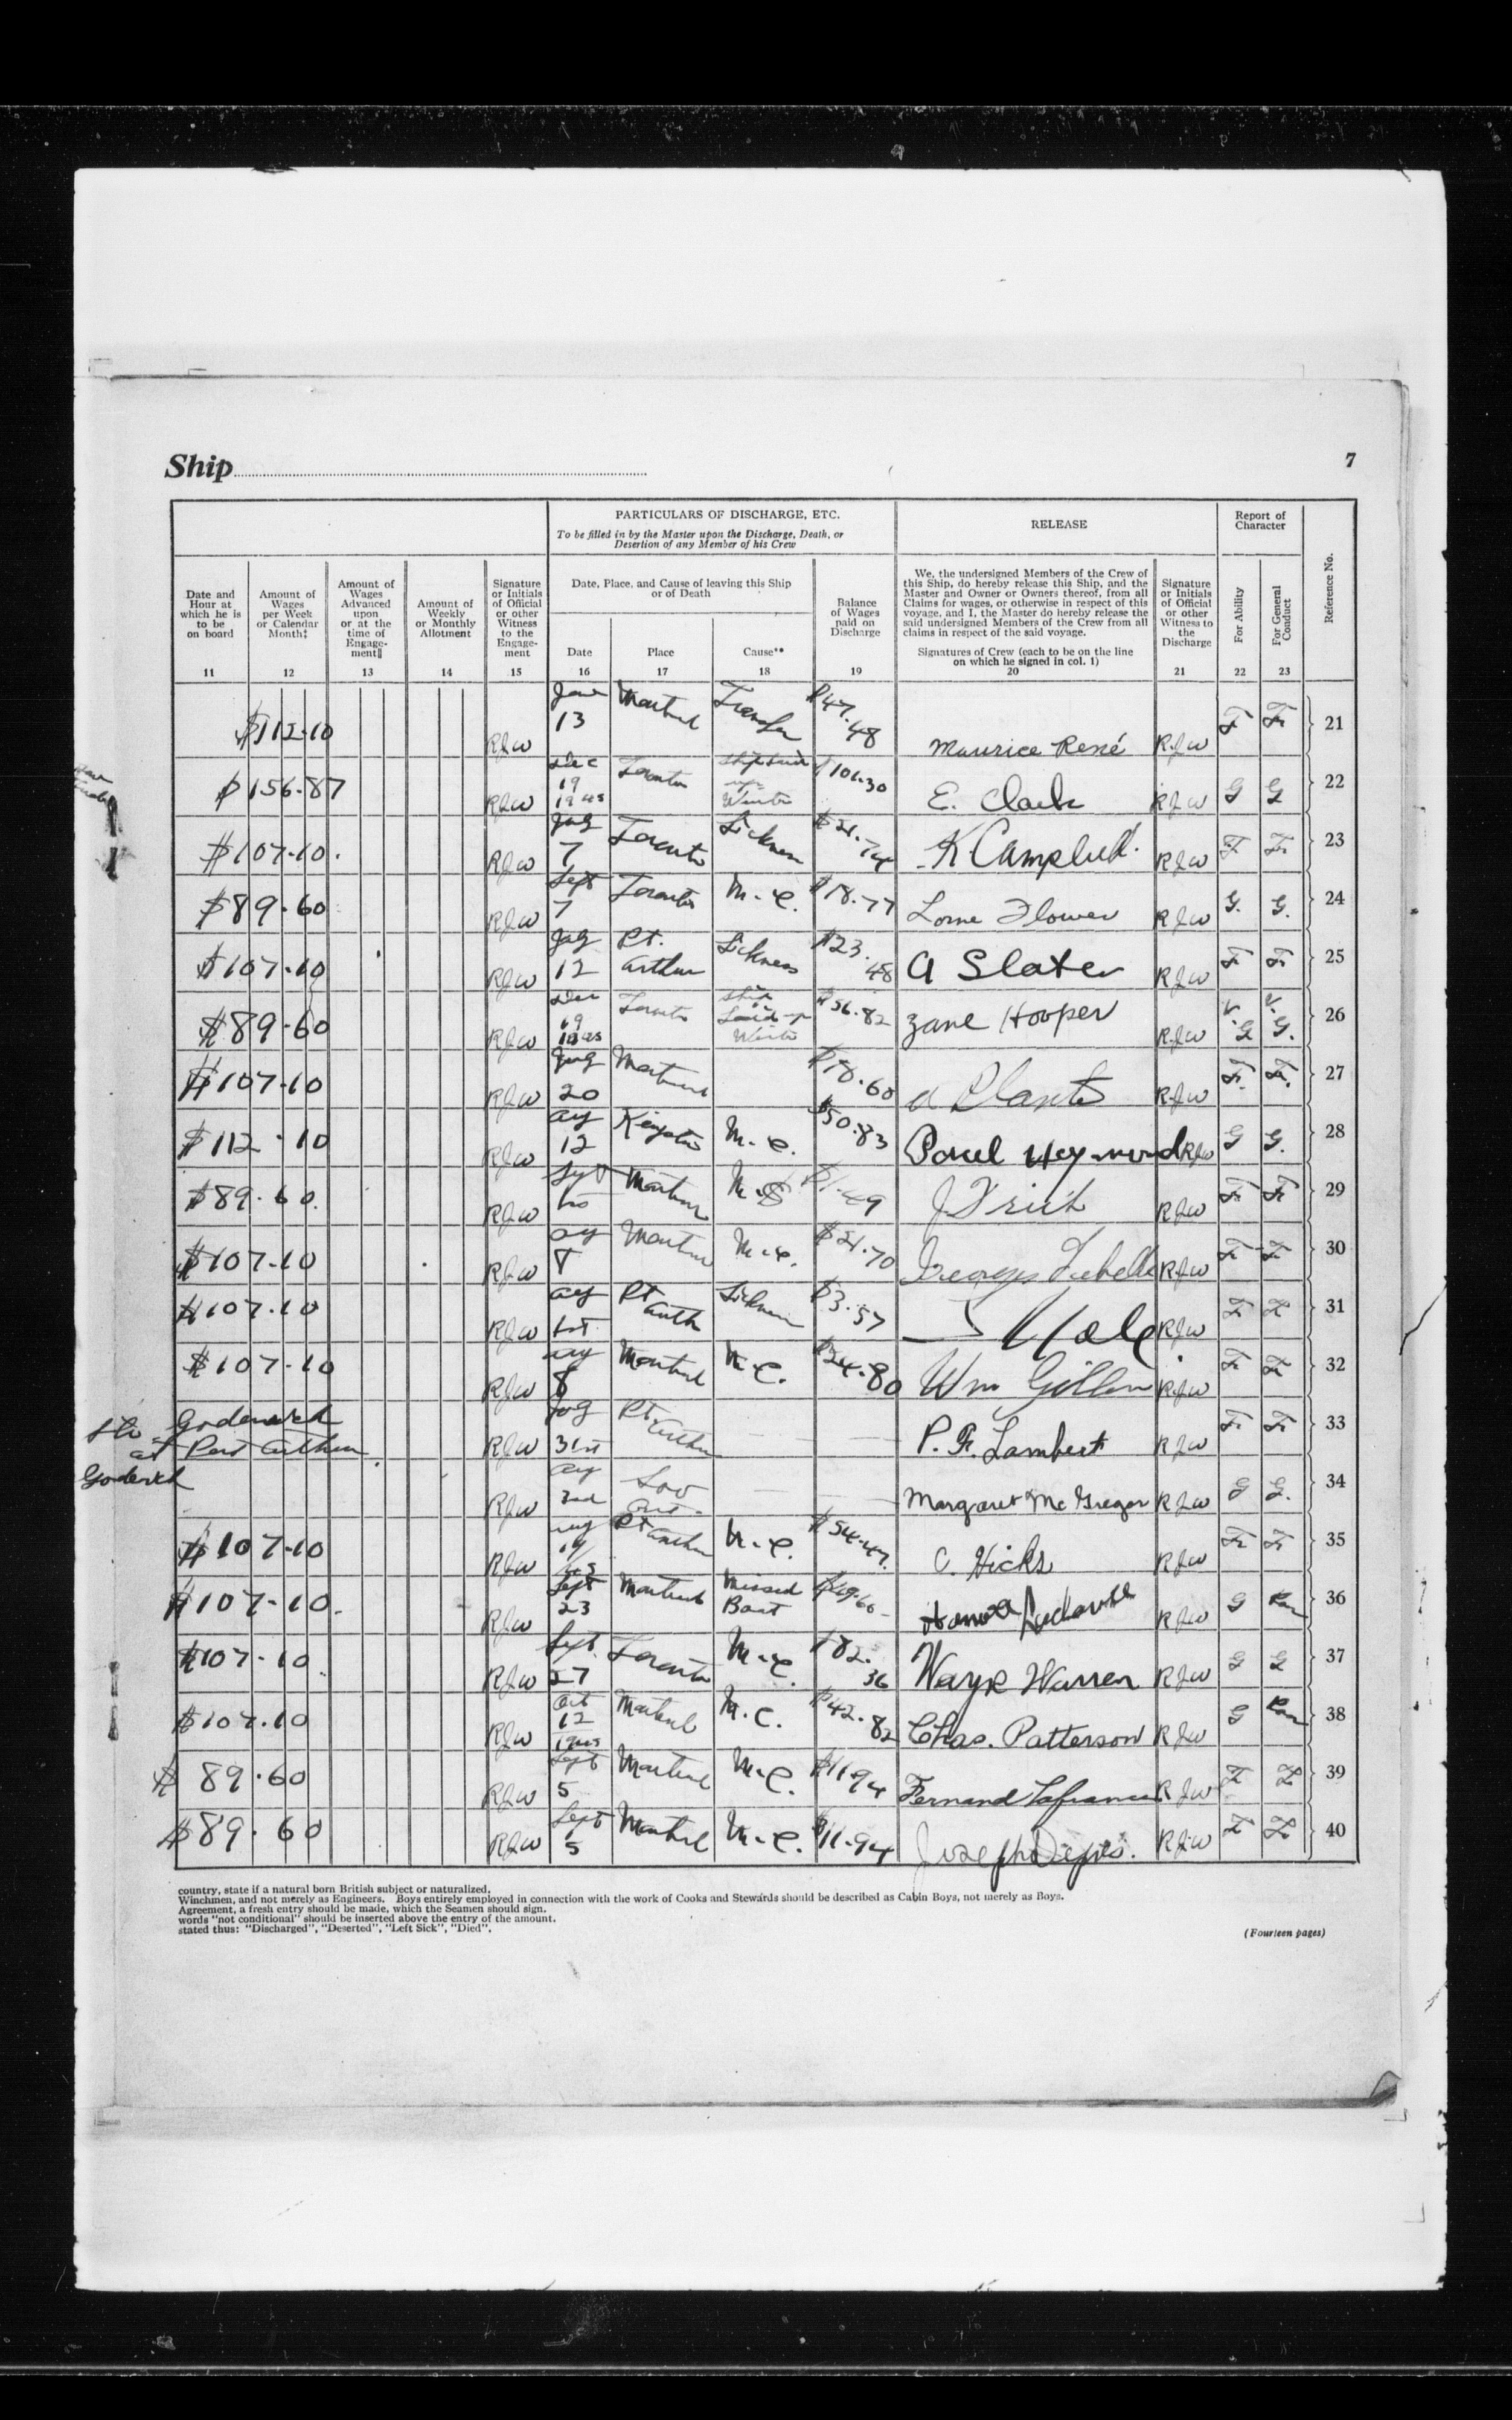 Ship
7
PARTICULARS OF DISCHARGE, ETC.
To be filled in by the Master upon the Discharge, Death, or
Desertion of any Member of his Crew
RELEASE
Report of
Character
Date and
Hour at
which he is
to be
on board
11
Amount of
Wages
per Week
or Calendar
Month‡
12
Amount of
Wages
Advanced
upon
or at the
time of
Engage-
ment‖
13
Amount of
Weekly
or Monthly
Allotment
14
Signature
or Initials
of Official
or other
Witness
to the
Engage-
ment
15
Date, Place, and Cause of leaving this Ship
or of Death
Date
16
Place
17
Cause**
18
Balance
of Wages
paid on
Discharge
19
We, the undersigned Members of the Crew of
this Ship, do hereby release this Ship, and the
Master and Owner or Owners thereof, from all
Claims for wages, or otherwise in respect of this
voyage, and I, the Master do hereby release the
said undersigned Members of the Crew from all
claims in respect of the said voyage.
Signatures of Crew (each to be on the line
on which he signed in col. 1)
20
Signature
or Initials
of Official
or other
Witness to
the
Discharge
21
For Ability
22
For General
Conduct
23
Reference No.
$112.10 RJW 13 Montreal Transfer $47.48 Maurice René RJW Fr Fr 21
$156.87 RJW Dec 19 1945 Toronto Ship Laid up Winter $101.30 E. Clark RJW G G 22
$107.10 RJW 7 Toronto Sickness $21.74 K Campbell RJW Fr Fr 23
$89.60 RJW Sept 7 Toronto M.C. $18.77 Lorne Flower RJW G. G. 24
$107.10 RJW 12 Pt. Arthur Sickness $23.48 A Slater RJW Fr Fr 25
$89.60 RJW Dec 19 1945 Toronto Ship Laid-up Winter $56.82 Zane Hooper RJW V.G V.G. 26
$107.10 RJW 20 Montreal $18.60 A Plante RJW Fr. Fr. 27
$112.10 RJW Aug 12 Kingston M.C. $50.83 RJW G G. 28
$89.60 RJW Sept Montreal $1.49 RJW Fr Fr 29
$107.10 RJW Aug 8 Montreal M.C. $21.70 Georges RJW Fr Fr 30
$107.10 RJW Aug 1st Pt Arth Sickness $3.57 RJW Fr Fr 31
$107.10 RJW Aug 8 Montreal M.C. $24.80 Wm RJW Fr Fr 32
Goderich
at Port Arthur RJW 31st Pt. Arthur P. F. Lambert RJW Fr Fr 33
Goderich
RJW Aug 2nd Soo Ont. Margaret McGregor RJW G G. 34
$107.10 RJW Aug Pt Arthur M.C. $54.47 C. Hicks RJW Fr Fr 35
$107.10 RJW Sept 23 Montreal Missed Boat RJW G 36
$107.10 RJW Sept. 27 Toronto M.C. $82.36 Wayne Warren RJW G G 37
$107.10 RJW Oct 12 1945 Montreal M.C. $42.82 Chas. Patterson RJW G 38
$89.60 RJW Sept 5 Montreal M.C. $11.94 Fernand Lafrance RJW Fr Fr 39
$89.60 RJW Sept 5 Montreal M.C. $11.94 Joseph RJW Fr Fr 40
country, state if a natural born British subject or naturalized.
Winchmen, and not merely as Engineers. Boys entirely employed in connection with the work of Cooks and Stewards should be described as Cabin Boys, not merely as Boys.
Agreement, a fresh entry should be made, which the Seamen should sign.
words "not conditional" should be inserted above the entry of the amount.
stated thus: "Discharged", "Deserted", "Left Sick", "Died",
(Fourteen pages)